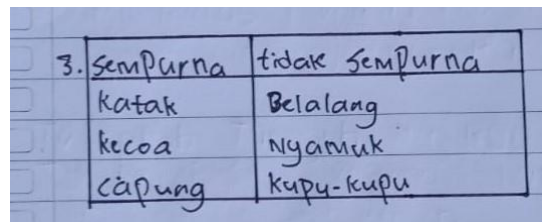 3. Sempurna tidak Sempurna
Katak Belalang
kecoa Nyamuk
Capung Kupu-kupu